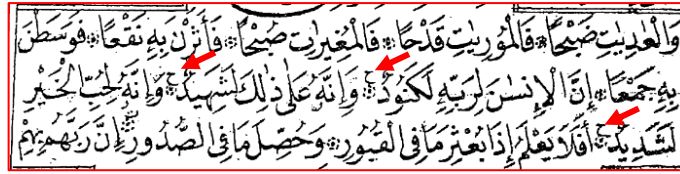 وَالْعٰدِيٰتِ ضَبْحًا ۞ فَالْمُورِيٰتِ قَدْحًا ۞ فَالْمُغِيرٰتِ صُبْحًا ۞ فَأَثَرْنَ بِهِ نَقْعًا ۞ فَوَسَطْنَ
بِهِ جَمْعًا ۞ إِنَّ الْإِنسٰنَ لِرَبِّهِ لَكَنُودٌ ۞ ج وَإِنَّهُ عَلَىٰ ذٰلِكَ لَشَهِيدٌ ۞ ج وَإِنَّهُ لِحُبِّ الْخَيْرِ
لَشَدِيدٌ ۞ ج أَفَلَا يَعْلَمُ إِذَا بُعْثِرَ مَا فِي الْقُبُورِ ۞ وَحُصِّلَ مَا فِي الصُّدُورِ ۞ إِنَّ رَبَّهُم بِهِمْ